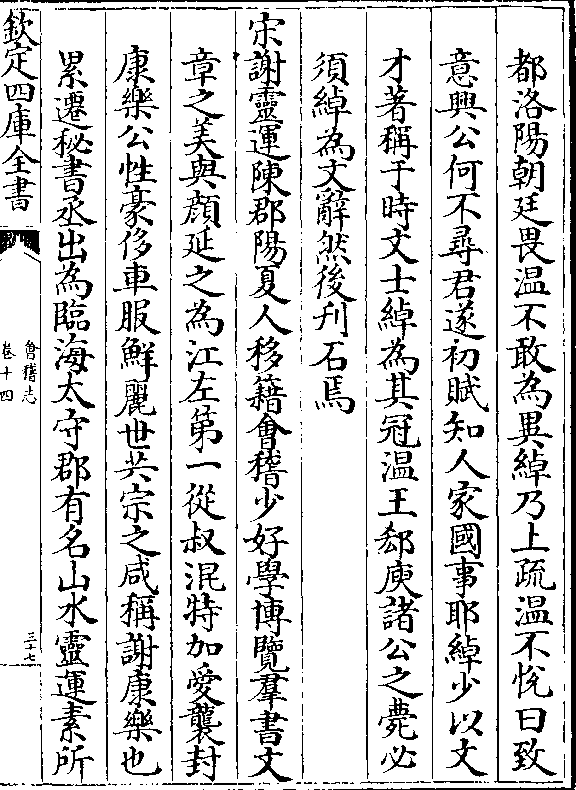 都洛陽朝廷畏温不敢為異綽乃上疏温不悦曰致
意興公何不尋君遂初賦知人家國事耶綽少以文
才著稱于時文士綽為其冠温王郄庾諸公之薨必
須綽為文辭然後刋石焉
宋謝靈運陳郡陽夏人移籍會稽少好學博覽羣書文
章之美與顔延之為江左第一從叔混特加愛襲封
康樂公性豪侈車服鮮麗世共宗之咸稱謝康樂也
累遷秘書丞出為臨海太守郡有名山水靈運素所
欽定四庫全書
會稽志
卷十四
三十七